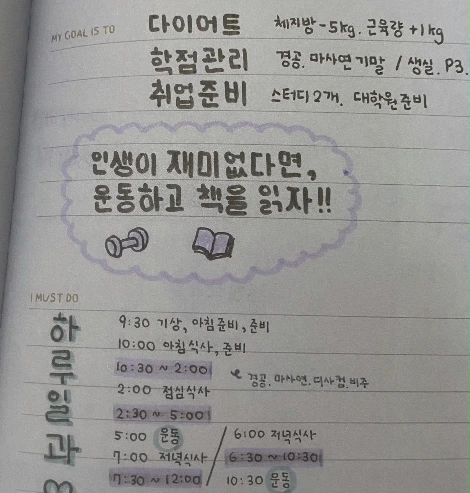 MY GOAL IS TO
다이어트 체지방 -5kg. 근육량 +1kg
학점관리 경공. 마사연 기말 / 생실. P3.
취업준비 스터디 2개. 대학원 준비
인생이 재미없다면,
운동하고 책을 읽자!!
I MUST DO
하루일과
9:30 기상, 아침준비, 준비
10:00 아침식사, 준비
10:30 ~ 2:00
경공. 마사연. 디사컴. 비주
2:00 점심식사
2:30 ~ 5:00
5:00 운동 / 6:00 저녁식사
7:00 저녁식사 / 6:30 ~ 10:30
7:30 ~ 12:00 / 10:30 운동